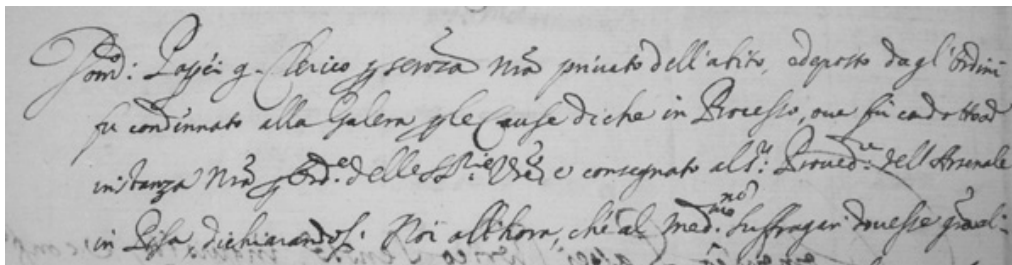 Dom.d: Pappei q. Clerico p senza nrã privato dell'abito, e deposto dagl'Ordini
fu condennato alla Galera p le Cause di che in Processo, ove fù condotto ad
instanza nrã p ord.e delle SS.rie Vrẽ, e consegnato al S.r Proved.re dell'Arsenale
in Pisa, dichiarandosi Noi all'hora, ch'al med.mo nõ suffragar dovesse